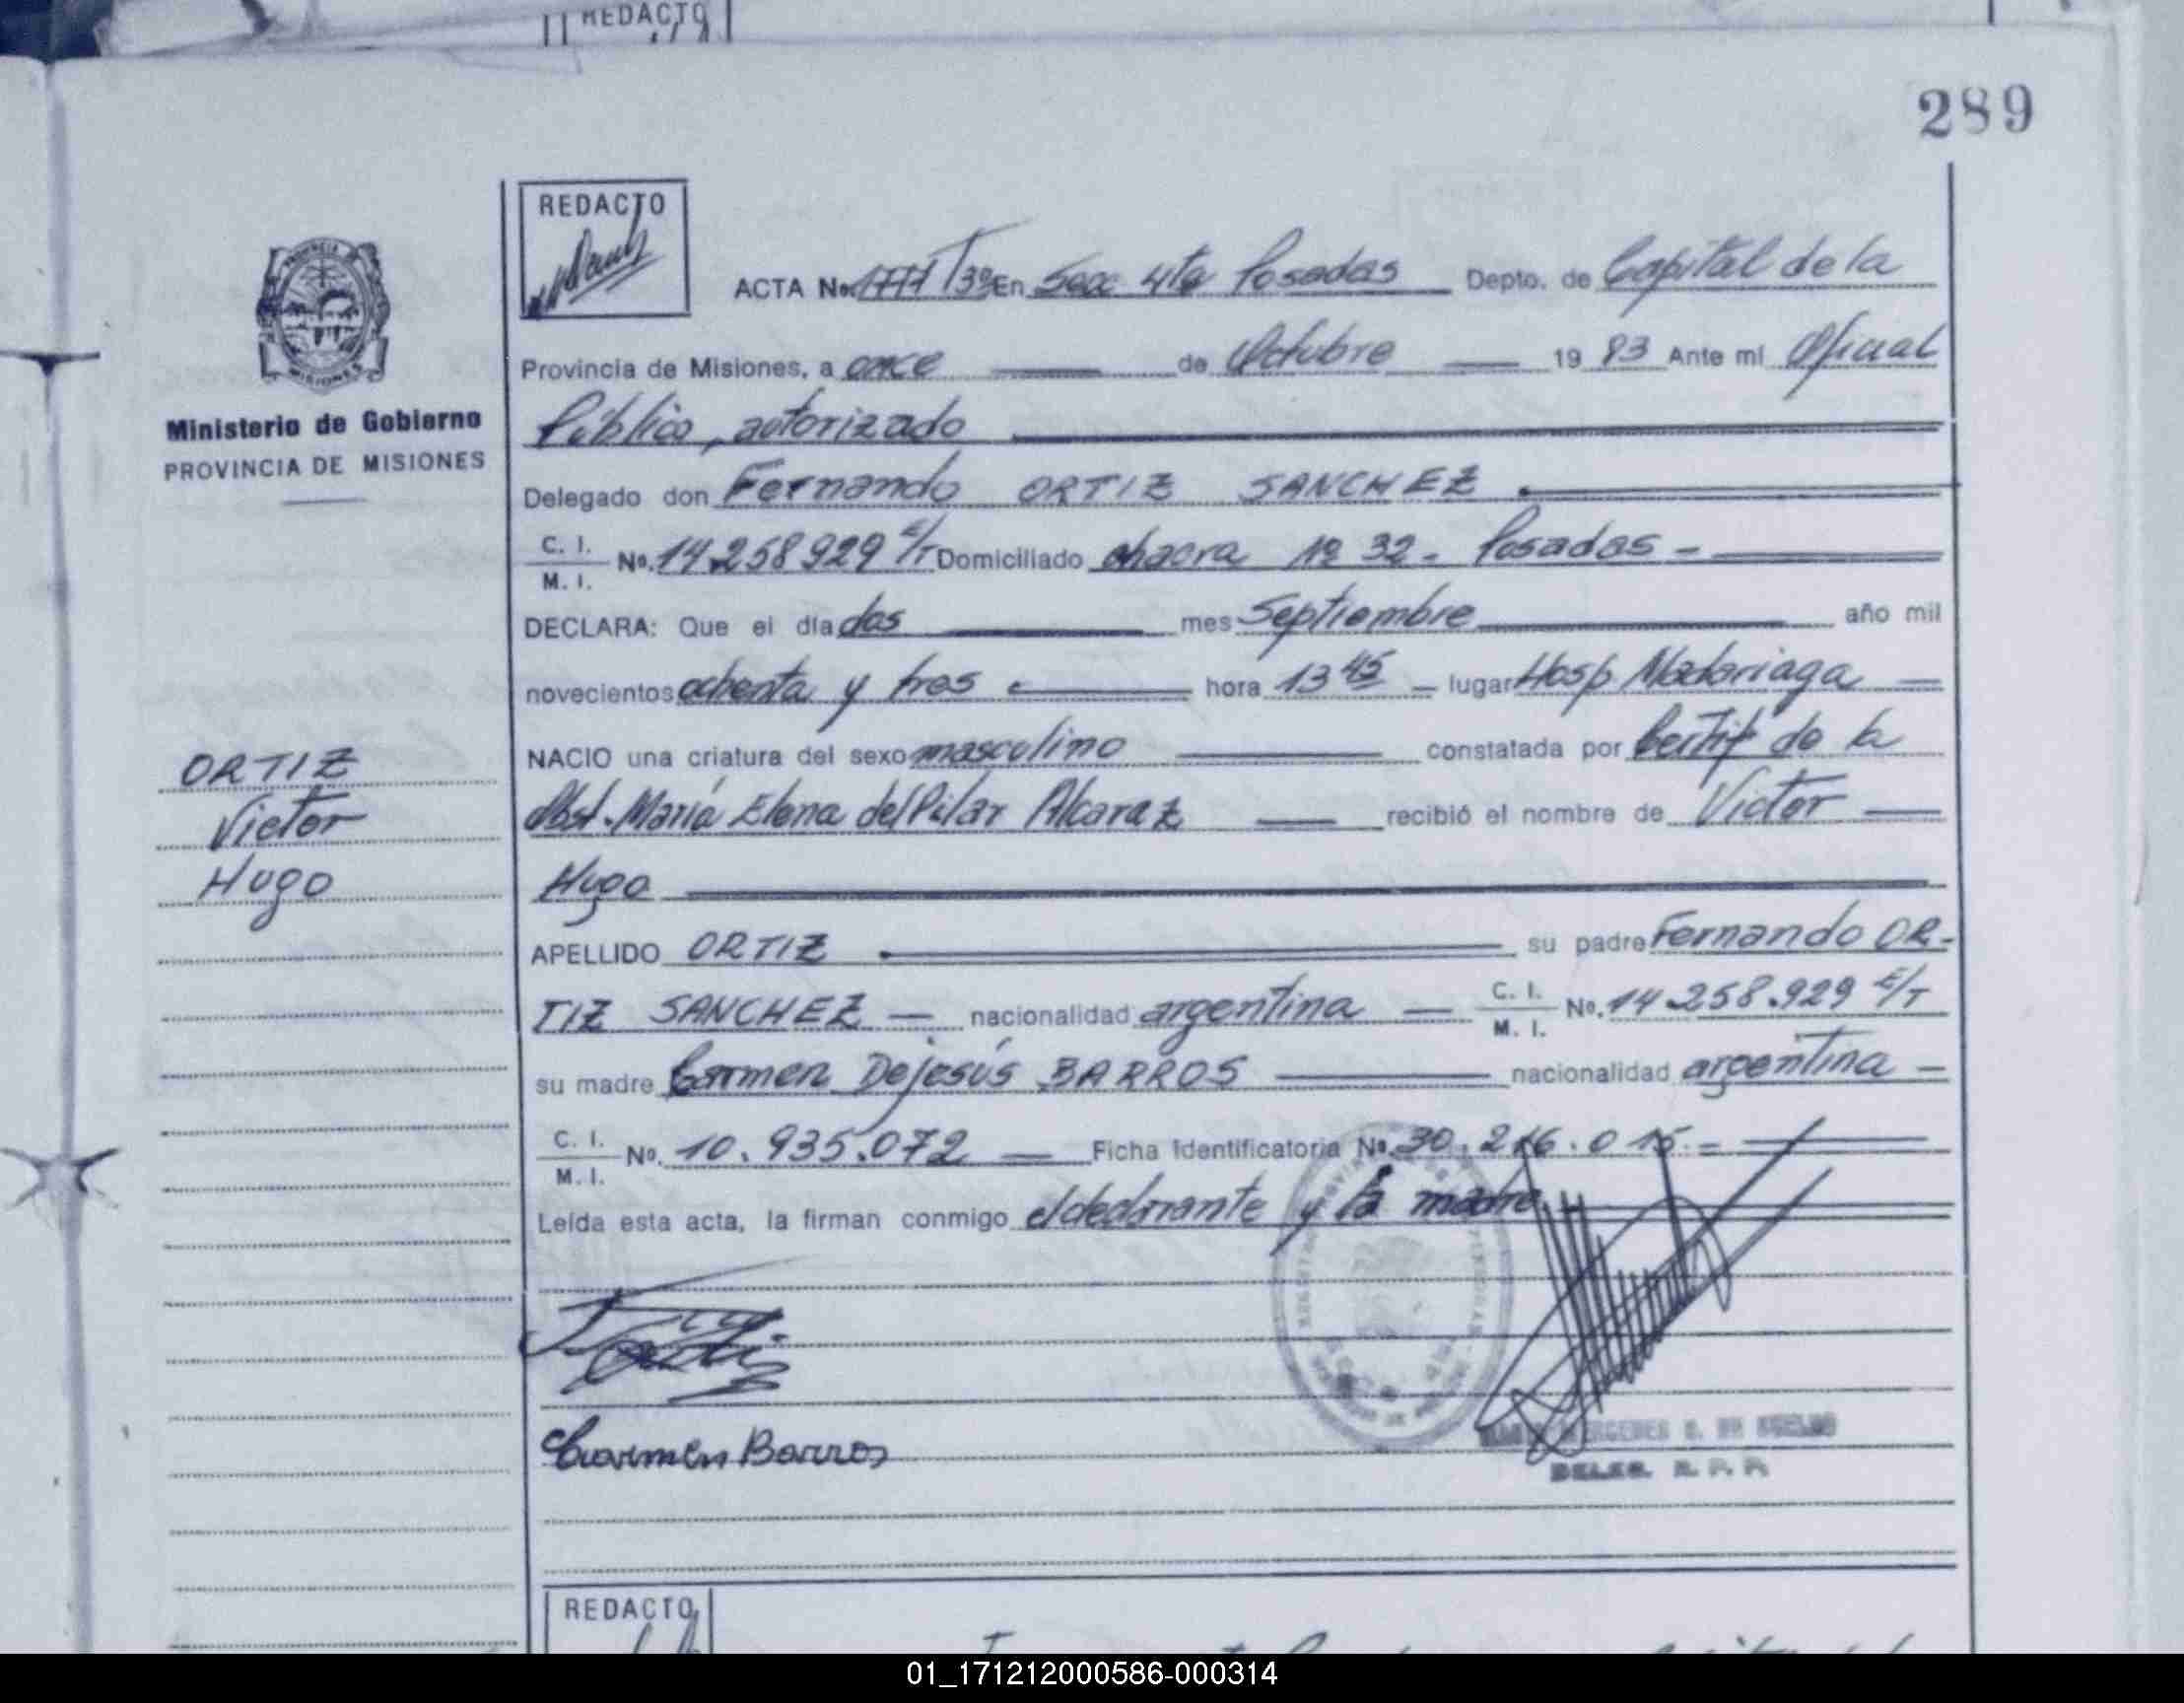 REDACTO
289
REDACTO
ACTA No. 1777 T 3º En Secc 4ta Posadas Depto. de Capital de la
Provincia de Misiones, a once de Octubre 19 83 Ante mi Oficial
Público, autorizado
Delegado don Fernando ORTIZ SANCHEZ
C. I. M. I. No. 14.258.929 E/T Domiciliado chacra Nº 32 - Posadas -
DECLARA: Que el día dos mes Septiembre año mil
novecientos ochenta y tres hora 13 45 lugar Hosp Madariaga
NACIO una criatura del sexo masculino constatada por Certif de la
Obst. María Elena del Pilar Alcaraz recibió el nombre de Victor
Hugo
APELLIDO ORTIZ su padre Fernando OR-
TIZ SANCHEZ nacionalidad argentina C. I. M. I. No. 14.258.929 E/T
su madre Carmen Dejesús BARROS nacionalidad argentina
C. I. M. I. No. 10.935.072 Ficha Identificatoria No. 30.216.015.-
Leída esta acta, la firman conmigo el declarante y la madre
Carmen Barros
DELEG. R. P. P.
Ministerio de Gobierno
PROVINCIA DE MISIONES
ORTIZ
Victor
Hugo
REDACTO
01_171212000586-000314